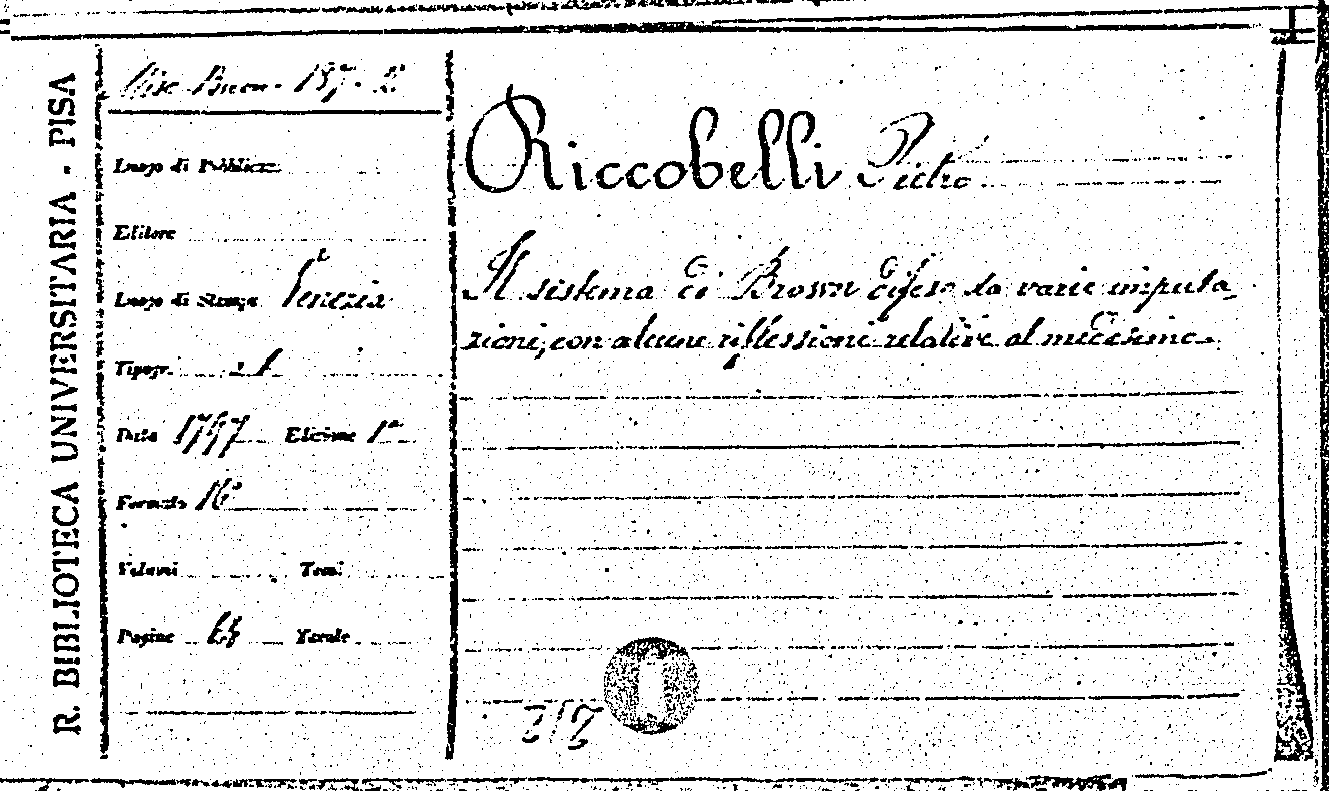 R. BIBLIOTECA UNIVERSITARIA - PISA
Misc. Buon. 187. 2
Luogo di Pubblicaz.
Editore
Luogo di Stampa Venezia
Tipogr.
Data 1797 Edizione 1ª
Formato 16°
Volumi Tomi
Pagine Tavole
Riccobelli Pietro
Il sistema di Brown difeso da varie imputa-
zioni, con alcune riflessioni relative al medesimo.